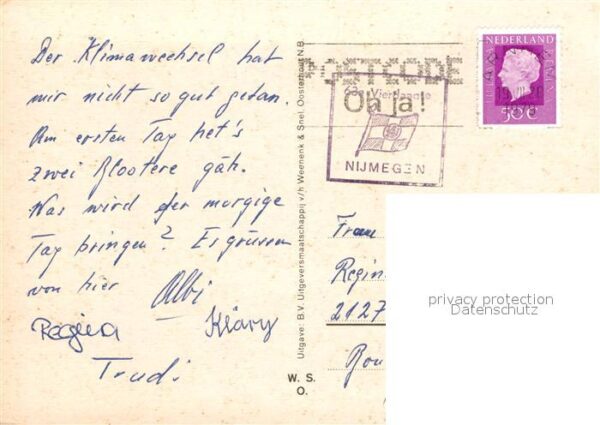 Der Klimawechsel hat
mir nicht so gut getan.
Am ersten Tag het's
zwei Blootere gäh.
Was wird der morgige
Tag bringen? Es grüssen
von hier Albi
Regina Kläry
Trudi
Uitgave: B.V. Uitgeversmaatschappij v/h Weenenk & Snel, Oosterhout N.B.
W. S.
O.
POSTCODE
Vierdaagse
Oh ja!
NIJMEGEN
NEDERLAND
50c
Frau
Regin
2127
privacy protection
Datenschutz